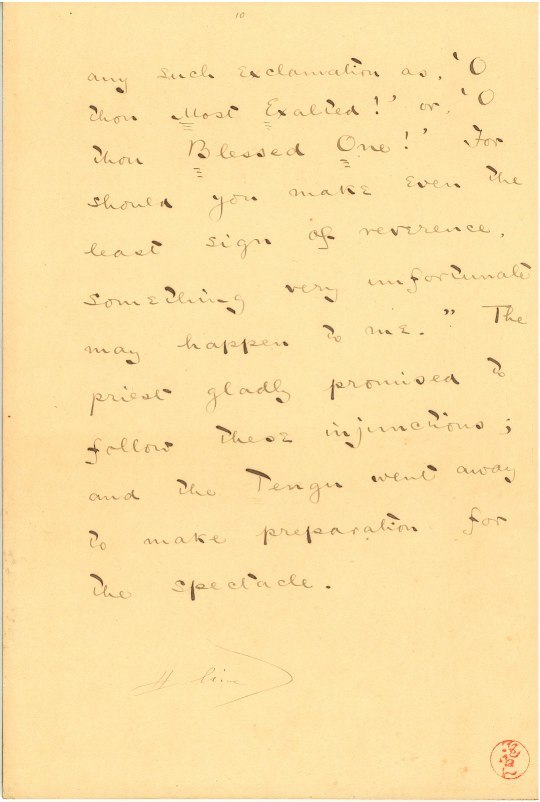 10
any such exclamation as, 'O
thou Most Exalted!' or, 'O
thou Blessed One!' For
should you make even the
least sign of reverence,
something very unfortunate
may happen to me." The
priest gladly promised to
follow these injunctions;
and the Tengu went away
to make preparation for
the spectacle.